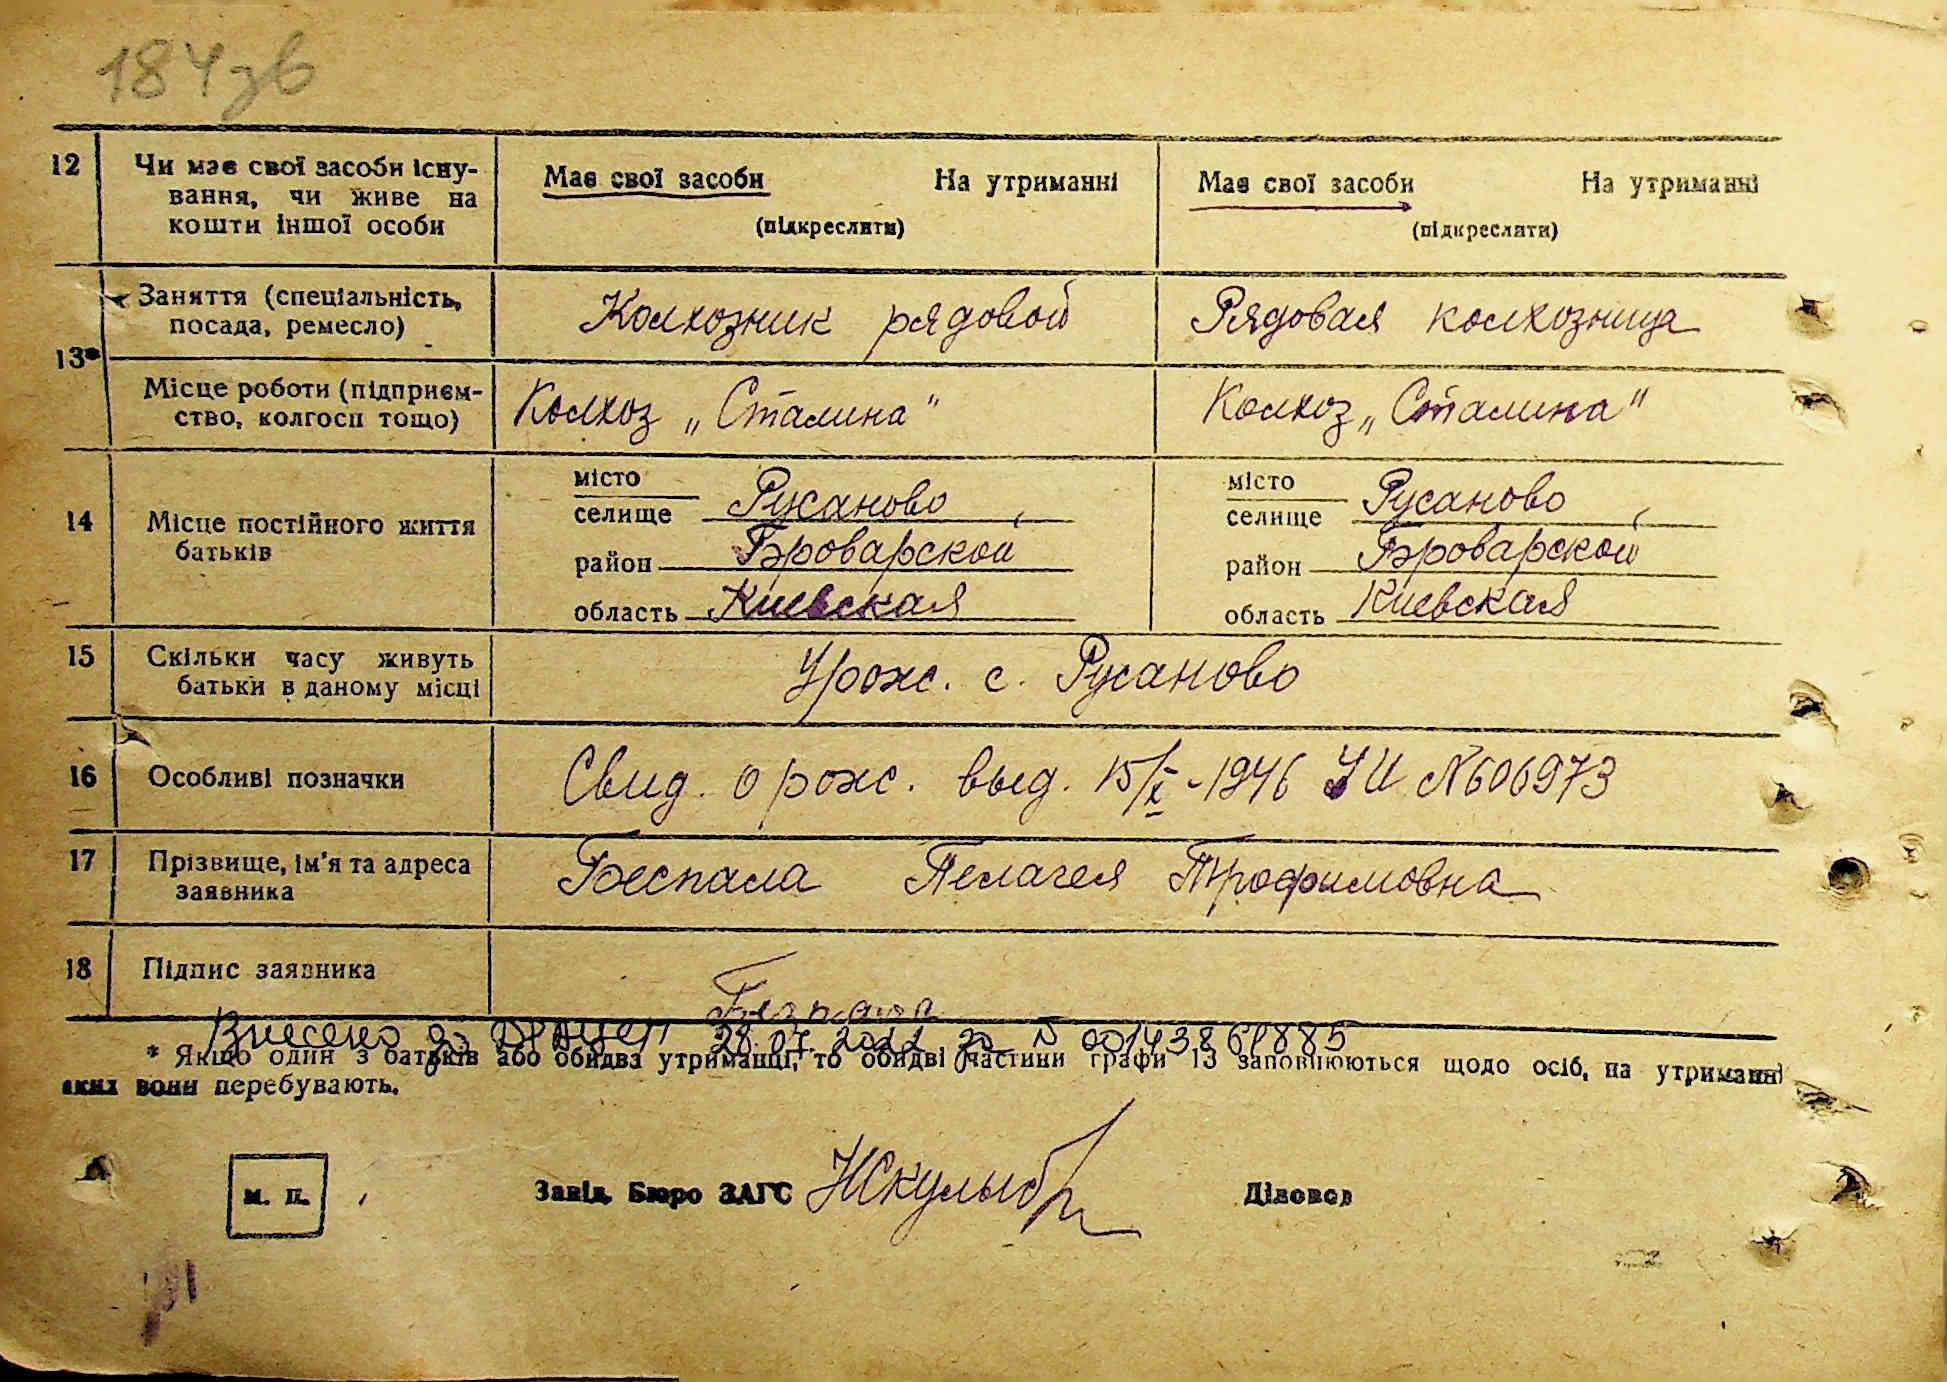 184зв
12 Чи має свої засоби існу- Має свої засоби На утриманні Має свої засоби На утриманні
вання, чи живе на (підкреслити) (підкреслити)
кошти іншої особи
13* Заняття (спеціальність, Колхозник рядовой Рядовая колхозница
посада, ремесло)
Місце роботи (підприєм- Колхоз „Сталина" Колхоз „Сталина"
ство, колгосп тощо)
14 Місце постійного життя батьків
місто
селище Русаново, місто селище Русаново,
район Броварской район Броварской
область Киевская область Киевская
15 Скільки часу живуть Урож. с. Русаново
батьки в даному місці
16 Особливі позначки Свид. о рож. выд. 15/X-1946 УИ №606973
17 Прізвище, ім'я та адреса Беспала Пелагея Трофимовна
заявника
18 Підпис заявника
Внесено до 28.07.2022 за № 00143861885
* Якщо один з батьків або обидва утриманці, то обидві частини графи 13 заповнюються щодо осіб, на утриманні
яких вони перебувають.
М. П. Завід. Бюро ЗАГС Діловод